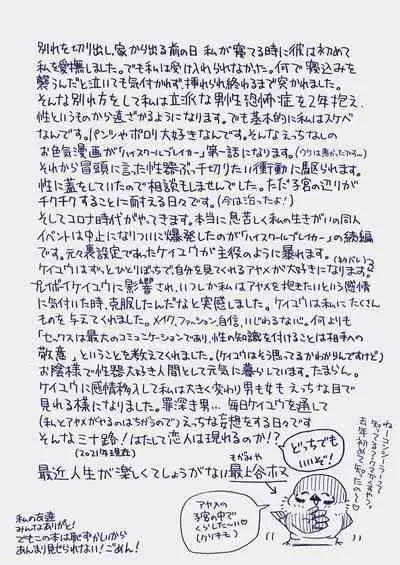 別れを切り出し、家から出る前の日 私が寝てる時に彼は初めて
私を愛撫しました。でも私は受け入れられなかった。何で寝込みを
襲うんだと泣いても気付かれず、挿れられ終わるまで突かれました。
そんな別れ方をして私は立派な男性恐怖症を2年抱え、
性というものから遠ざかるようになります。でも基本的に私はスケベ
なんです。パンシャポロリ大好きなんです。そんなえっちなしの
お色気漫画が「ハイスクールブレイカー」第一話になります。
それから冒頭に言った性器ぶっ千切りたい衝動に駆られます。
性に蓋をしていたので相談もしませんでした。ただ子宮の辺りが
チクチクすることに耐える日々です。(今は治ったよ!)
そしてコロナ時代がやってきます。本当に息苦しく私の生きがいの同人
イベントは中止になりついに爆発したのが「ハイスクールブレイカー」の続編
です。元々裏設定であったケイユウが主役のように暴れます。(ネタバレ)
ケイユウはずっとひとりぼっちで自分を見てくれるアヤメが大好きになります。
プレイボイケイユウに影響され、いつしか私はアヤメを抱きたいという感情
に気付いた時、克服したんだなと実感しました。ケイユウは私にたくさん
ものを与えてくれました。メイク、ファッション、自信、いじわるな心。何よりも
「セックスは最大のコミュニケーションであり、性の知識を付けることは相手への
敬意」ということを教えてくれました。(ケイユウはそう思ってるかわかりんですけど)
お陰様で性器大好き人間として元気に暮らしています。たまらん。
ケイユウに感情移入して私は大きく変わり男も女もえっちな目で
見れる様になりました。罪深き男… 毎日ケイユウを通して
(私とアヤメがやるのはちがうので)えっちな妄想をする日々です
そんな三十路!はたして恋人は現れるのか!?
(2021年現在)
どっちでも
いいぞ!
最近人生が楽しくてしょうがない最上谷ホヌ
もがみや
ねーコンシーラーって
知ってる?クマかくすやつ。
去年初めて知ったの〜♡
アヤメの
子宮の中で
くらした〜い♡
(クソキモ)
私の友達
みんなありがと!
でもこの本は恥ずかしいから
あんまり見せられない!ごめん!